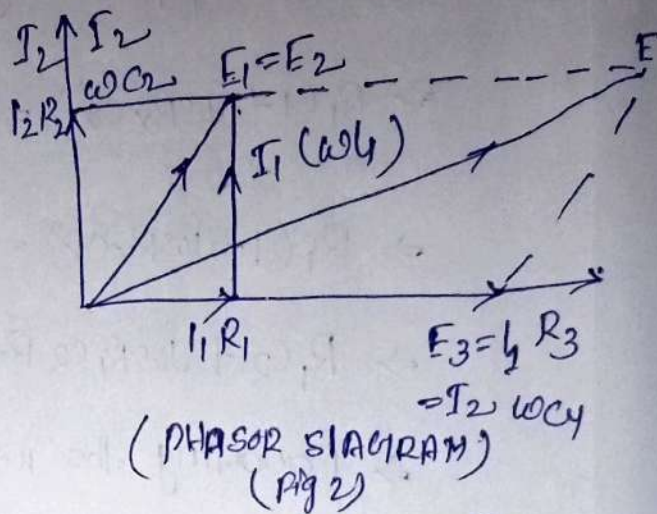 I2 I2
ωC2 E1 = E2 E
I2R2
I1 (ωL1)
I1 R1 E3 = I1 R3
= I2 ωC4
(PHASOR SIAGRAM)
(Fig 2)